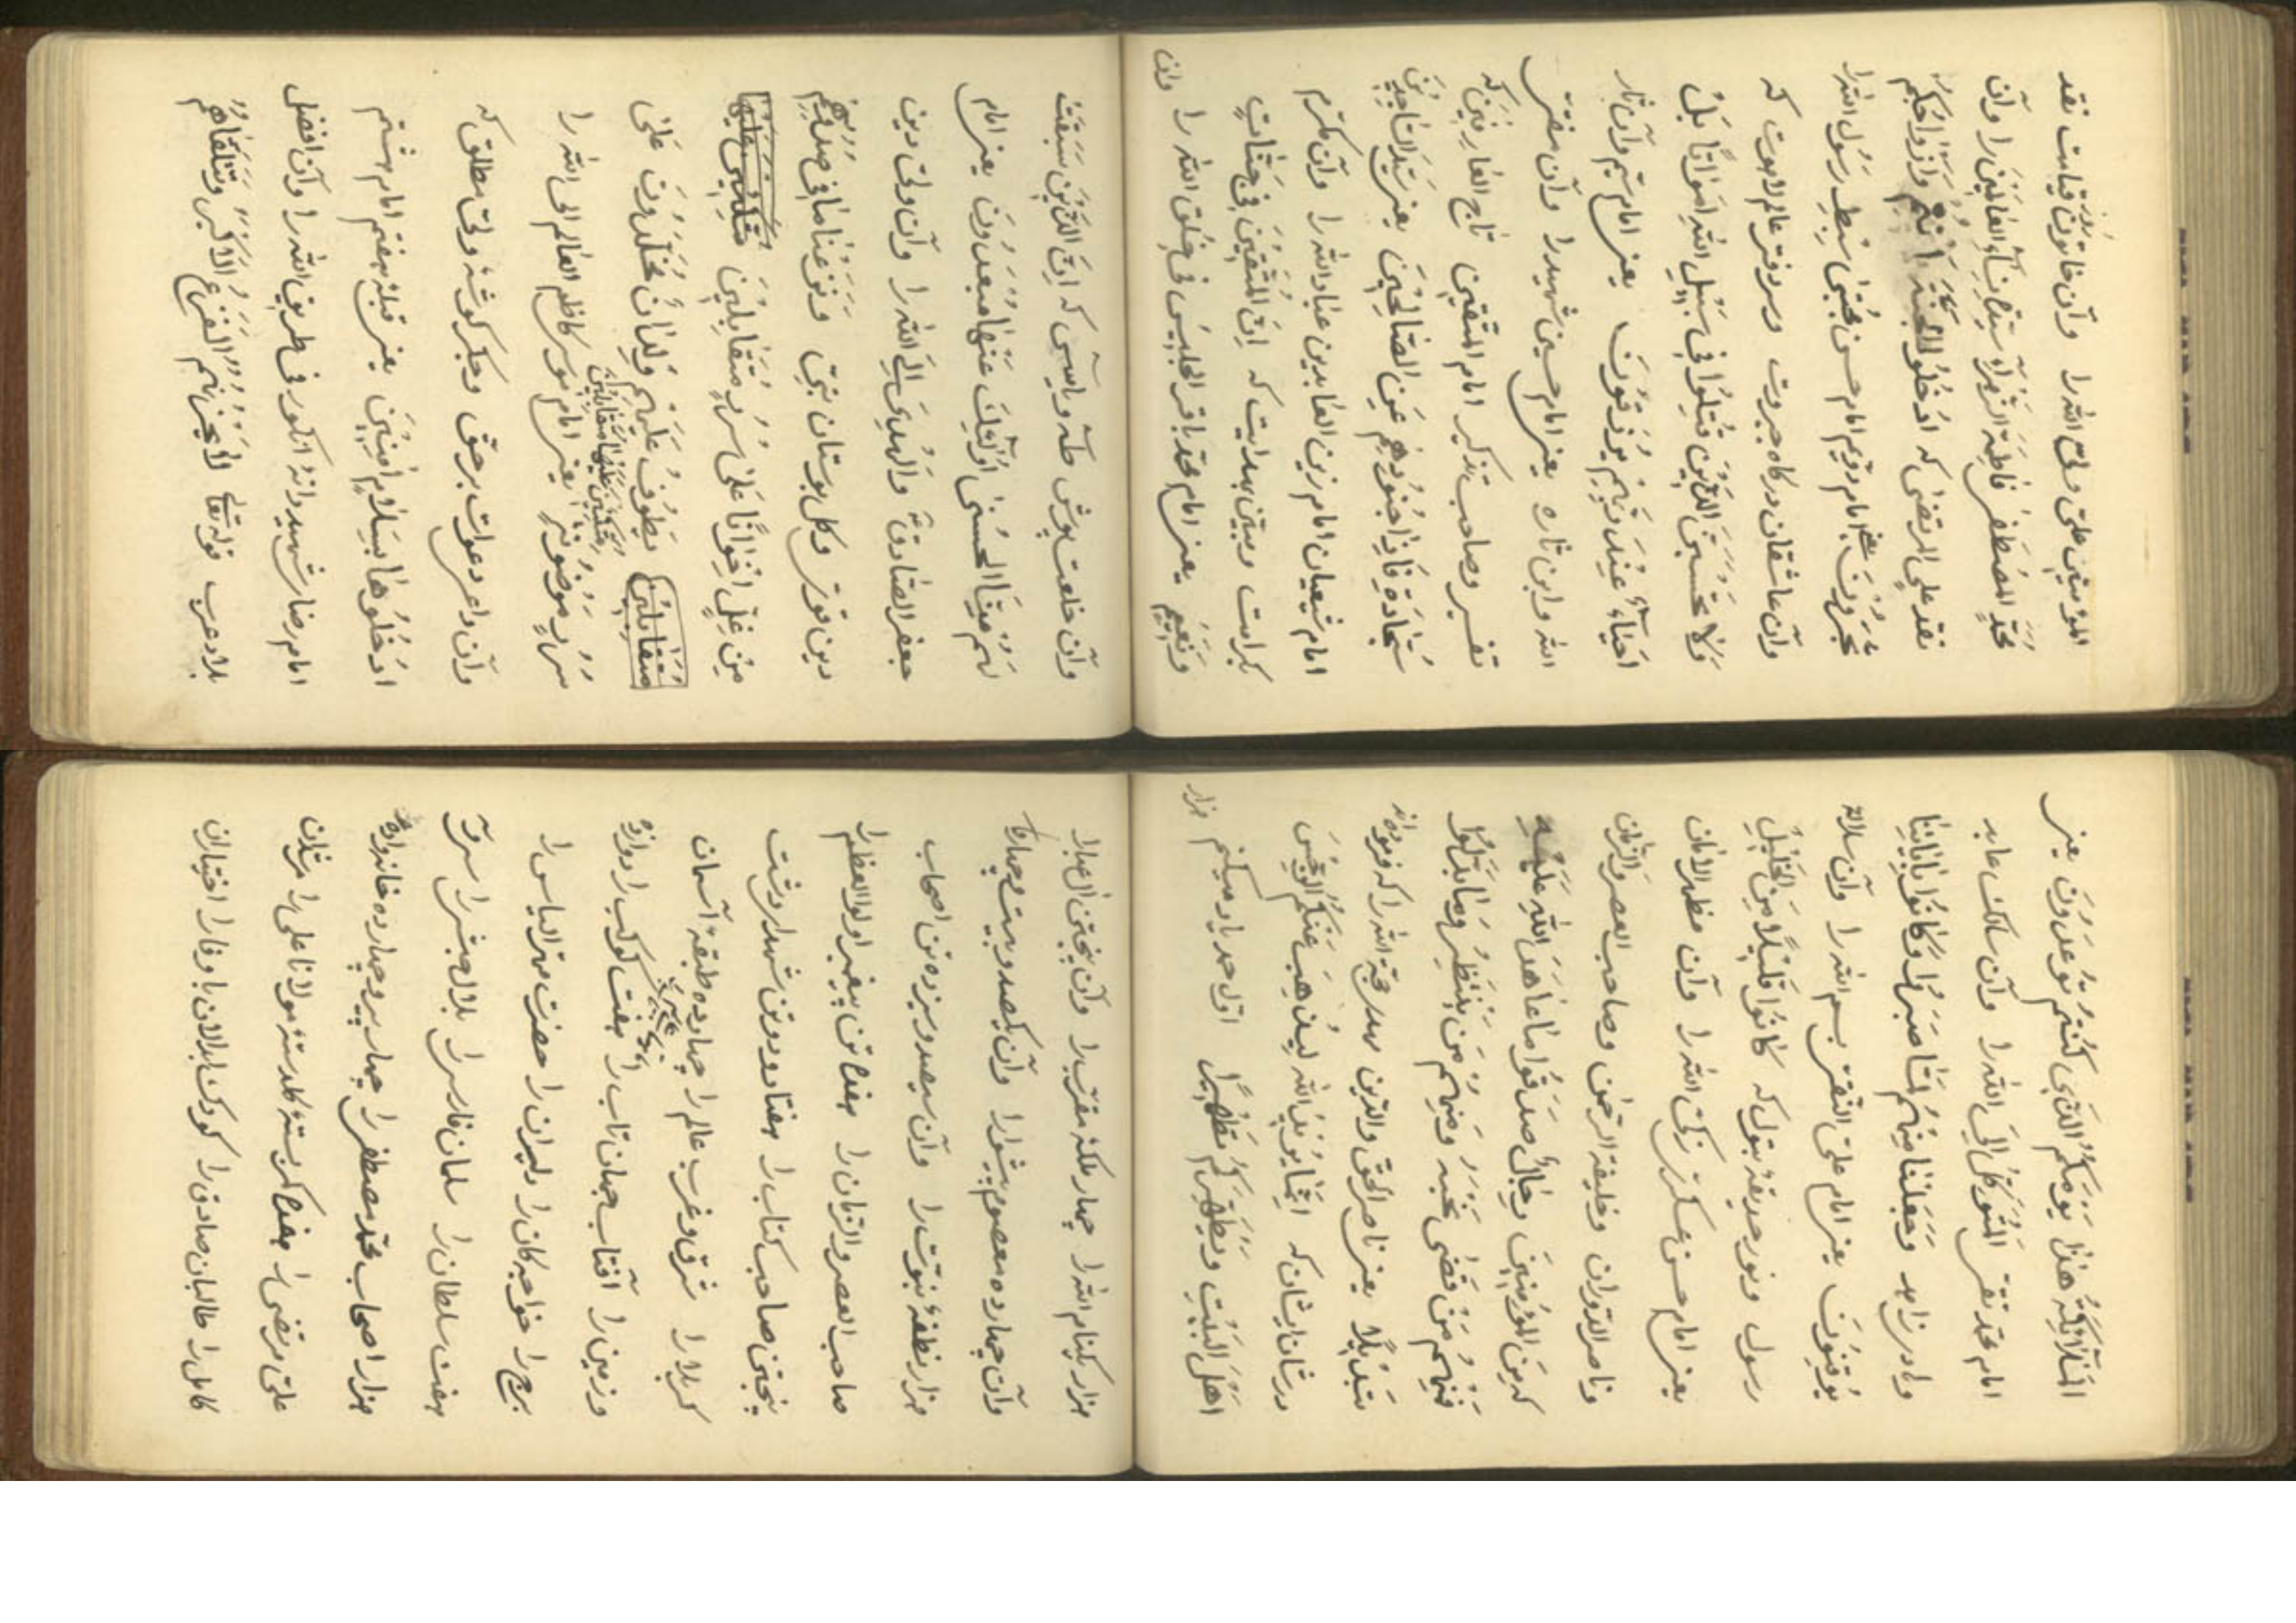 المؤمنین علی ولی الله را وآن خاتون روز قیامت نقد
محمّد المصطفی فاطمة الزهرآء سیّدة نسآء العالمین را وآن
نقد علی المرتضی که ادخلوا الجنّة انتم وازواجکم
تحبرون یعنی امام دویم امام حسن مجتبی سبط رسول الله را
وآن عاشقان درکاه جبروت وسردفتر عالم لاهوت که
ولا تحسبنّ الذین قتلوا فی سبیل الله امواتاً بل
احیآء عند ربّهم یرزقون یعنی امام سیم وآن ثار
الله وابن ثاره یعنی امام حسین شهید را وآن مفتی
تفسیر وصاحب تذکیر امام المتّقین تاج العارفین که
سجّادة فاذا جنودهم عین الصّالحین یعنی سیّد الساجدین
امام شیعیان امام زین العابدین عباد الله را وآن مکرّم
بکرامت ومبیّن بهدایت که انّ المتّقین فی جنّات
ونعیم یعنی امام محمّد باقر الجلیس فی خلق الله را وآن
وآن خلعت پوش طه ویاسین که انّ الذین سبقت
لهم منّا الحسنی اولئک عنها مبعدون یعنی امام
جعفر الصّادق والهادی الی الله را وآن ولی دین
دین قوی وکل بوستان نبی ونزعنا ما فی صدورهم
من غلّ اخواناً علی سرر متقابلین متکئین علیها
متقابلین یطوف علیهم ولدان مخلّدون علی
سرر موضونة متکئین علیها متقابلین یعنی امام موسی کاظم العالم الی الله را
وآن داعی دعوات برحق وجکر کوشهٔ ولی مطلق که
ادخلوها بسلام آمنین یعنی قبلهٔ هفتم امام هشتم
امام رضا شهید دانهٔ انکور فی طریق الله را وآن افضل
بلاد عرب قوله تعالی لا یحزنهم الفزع الاکبر وتتلقّاهم
الملآئکة هذا یومکم الذی کنتم توعدون یعنی
امام محمّد تقی المتوکّل الی الله را وآن سالک عابد
وآن زاهد وجعلنا منهم لمّا صبروا وکانوا بایاتنا
یوقنون یعنی امام علی النّقی بسم الله را وآن سلالهٔ
رسول ونور حدیقهٔ بتول که کانوا قلیلاً من اللیل
یعنی امام حسن عسکری زکی الله را وآن مظهر الامان
وناصر الدوران وخلیفة الرحمن وصاحب العصر والزمان
که من المؤمنین رجال صدقوا ما عاهدوا الله علیه
فمنهم من قضی نحبه ومنهم من ینتظر وما بدّلوا
تبدیلاً یعنی ناصر الحق والدین مهدی حجّة الله را که فرموده اند
درشان ایشان که انّما یرید الله لیذهب عنکم الرجس
اهل البیت ویطهّرکم تطهیراً اوّل حمد یاد میکنم هزار
هزار یکنام الله را چهار ملکهٔ مقرّب را وآن پنجتن آل عبا را
وآن چهارده معصوم پیشوا را وآن یکصد وبیست وچهار
هزار نطفهٔ نبوّت را وآن سیصد وسیزده تن اصحاب
صاحب العصر والزمان را هفده تن پیغمبر اولو العظم را
پنجتن صاحب کتاب را هفتاد ودو تن شهدا دشت
کربلا را شرق وغرب عالم را چهارده طبقهٔ آسمان
وزمین را آفتاب جهان تاب را هفت کوکب را دوازده
برج را خواجه کان را دلیران را حضرت مهتر الیاس را
هفت سلطان را سلمان فارسی را بلال حبشی را سی وسه
هزار اصحاب محمّد مصطفی را چهار پیر وچهارده خانواده
علی مرتضی را هفده کمر بستهٔ کلدستهٔ مولانا علی را مردان
کامل را طالبان صادق را کودک ابدالان با وفا را اختیاران